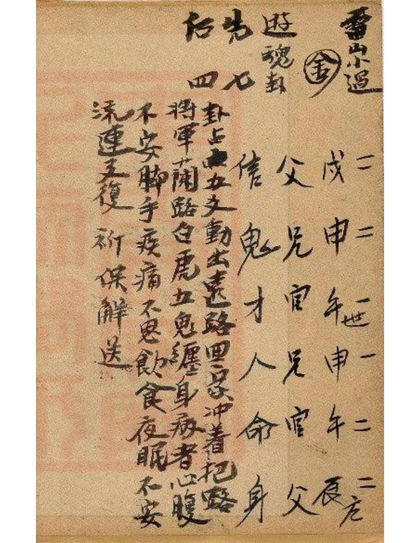 雷山小過
金
二二一世一二二
戌申午申午辰
父兄官兄官父
信鬼才人命身
遊魂卦
先七
后四
卦占五文動出遠路回家冲着把路
将軍蘭路白虎五鬼纏身病者心腹
不安脚手疾痛不思飲食夜眠不安
流連復祈保解送